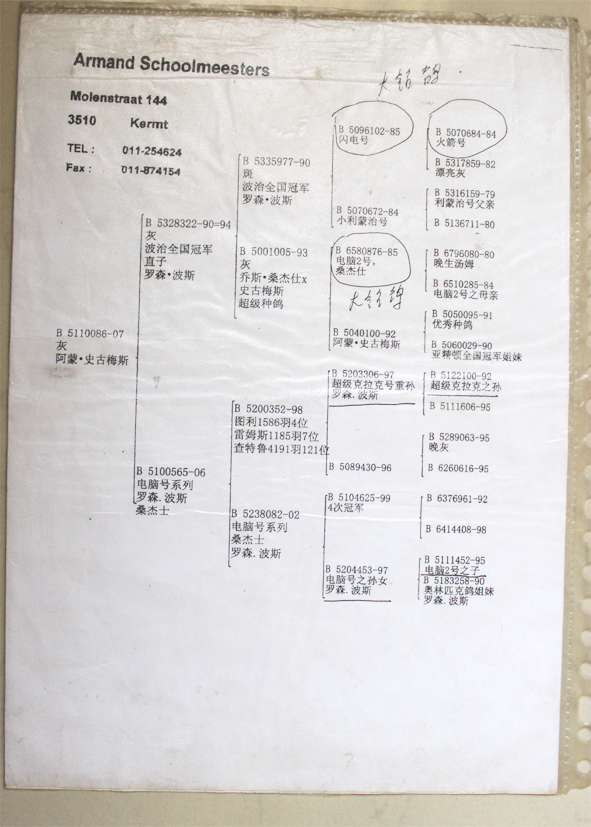 Armand Schoolmeesters
Molenstraat 144
3510 Kermt
TEL : 011-254624
Fax : 011-874154
大铭鸽
B 5110086-07
灰
阿蒙•史古梅斯
B 5328322-90=94
灰
波治全国冠军
直子
罗森•波斯
B 5100565-06
电脑号系列
罗森.波斯
桑杰士
B 5335977-90
斑
波治全国冠军
罗森•波斯
B 5001005-93
灰
乔斯•桑杰仕x
史古梅斯
超级种鸽
B 5200352-98
图利1586羽4位
雷姆斯1185羽7位
查特鲁4191羽121位
B 5238082-02
电脑号系列
桑杰士
罗森.波斯
B 5096102-85
闪电号
B 5070672-84
小利蒙治号
B 6580876-85
电脑2号.
桑杰仕
大铭鸽
B 5040100-92
阿蒙•史古梅斯
B 5203306-97
超级克拉克号重孙
罗森.波斯
B 5089430-96
B 5104625-99
4次冠军
B 5204453-97
电脑号之孙女
罗森.波斯
B 5070684-84
火箭号
B 5317859-82
漂亮灰
B 5316159-79
利蒙治号父亲
B 5136711-80
B 6796080-80
晚生汤姆
B 6510285-84
电脑2号之母亲
B 5050095-91
优秀种鸽
B 5060029-90
亚精顿全国冠军姐妹
B 5122100-92
超级克拉克之孙
B 5111606-95
B 5289063-95
晚灰
B 6260616-95
B 6376961-92
B 6414408-98
B 5111452-95
电脑2号之子
B 5183258-90
奥林匹克鸽姐妹
罗森.波斯